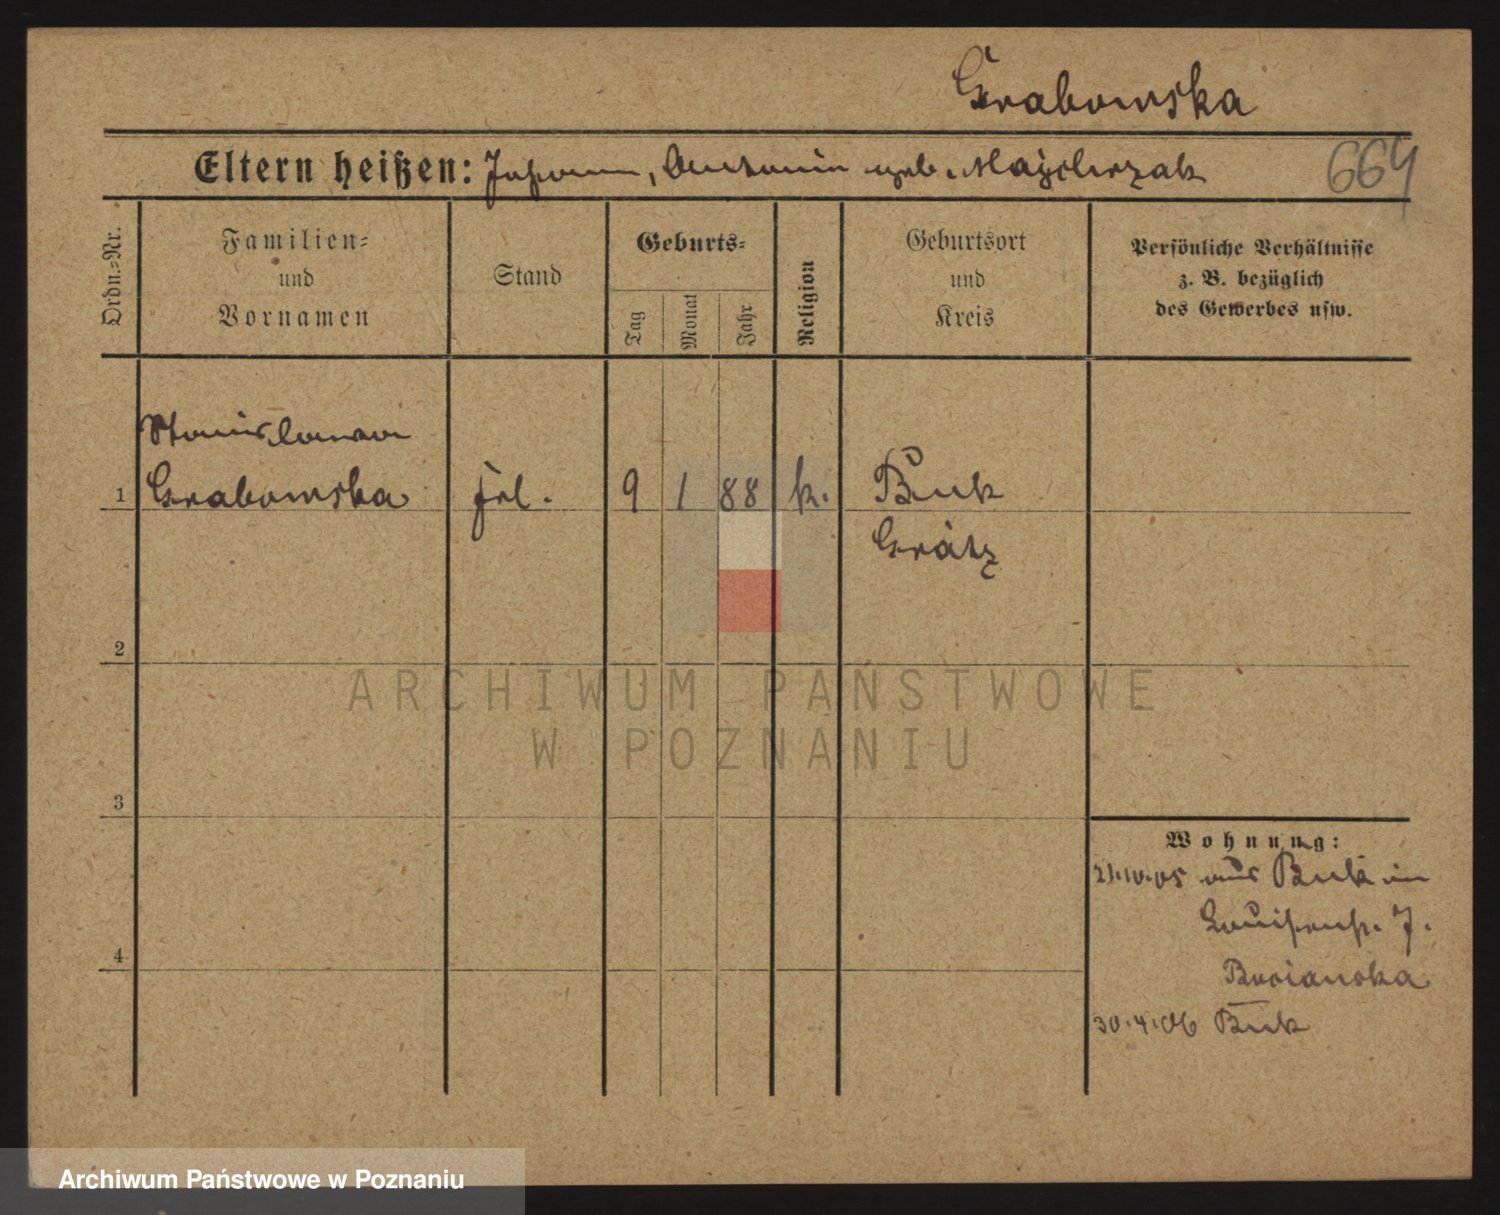 Grabowska
Eltern heißen: Johann, Antonie geb. Majchrzak
664
Ordn.=Nr.
Familien=
und
Vornamen
Stand
Geburts=
Tag
Monat
Jahr
Religion
Geburtsort
und
Kreis
Persönliche Verhältnisse
z. B. bezüglich
des Gewerbes usw.
Stanislawa
1 Grabowska frl. 9 1 88 k. Buk
Grätz
2
3
4
Wohnung:
21.10.05 aus Buk in
Louisenst. 7.
30.4.06 Buk
ARCHIWUM PAŃSTWOWE
W POZNANIU
Archiwum Państwowe w Poznaniu